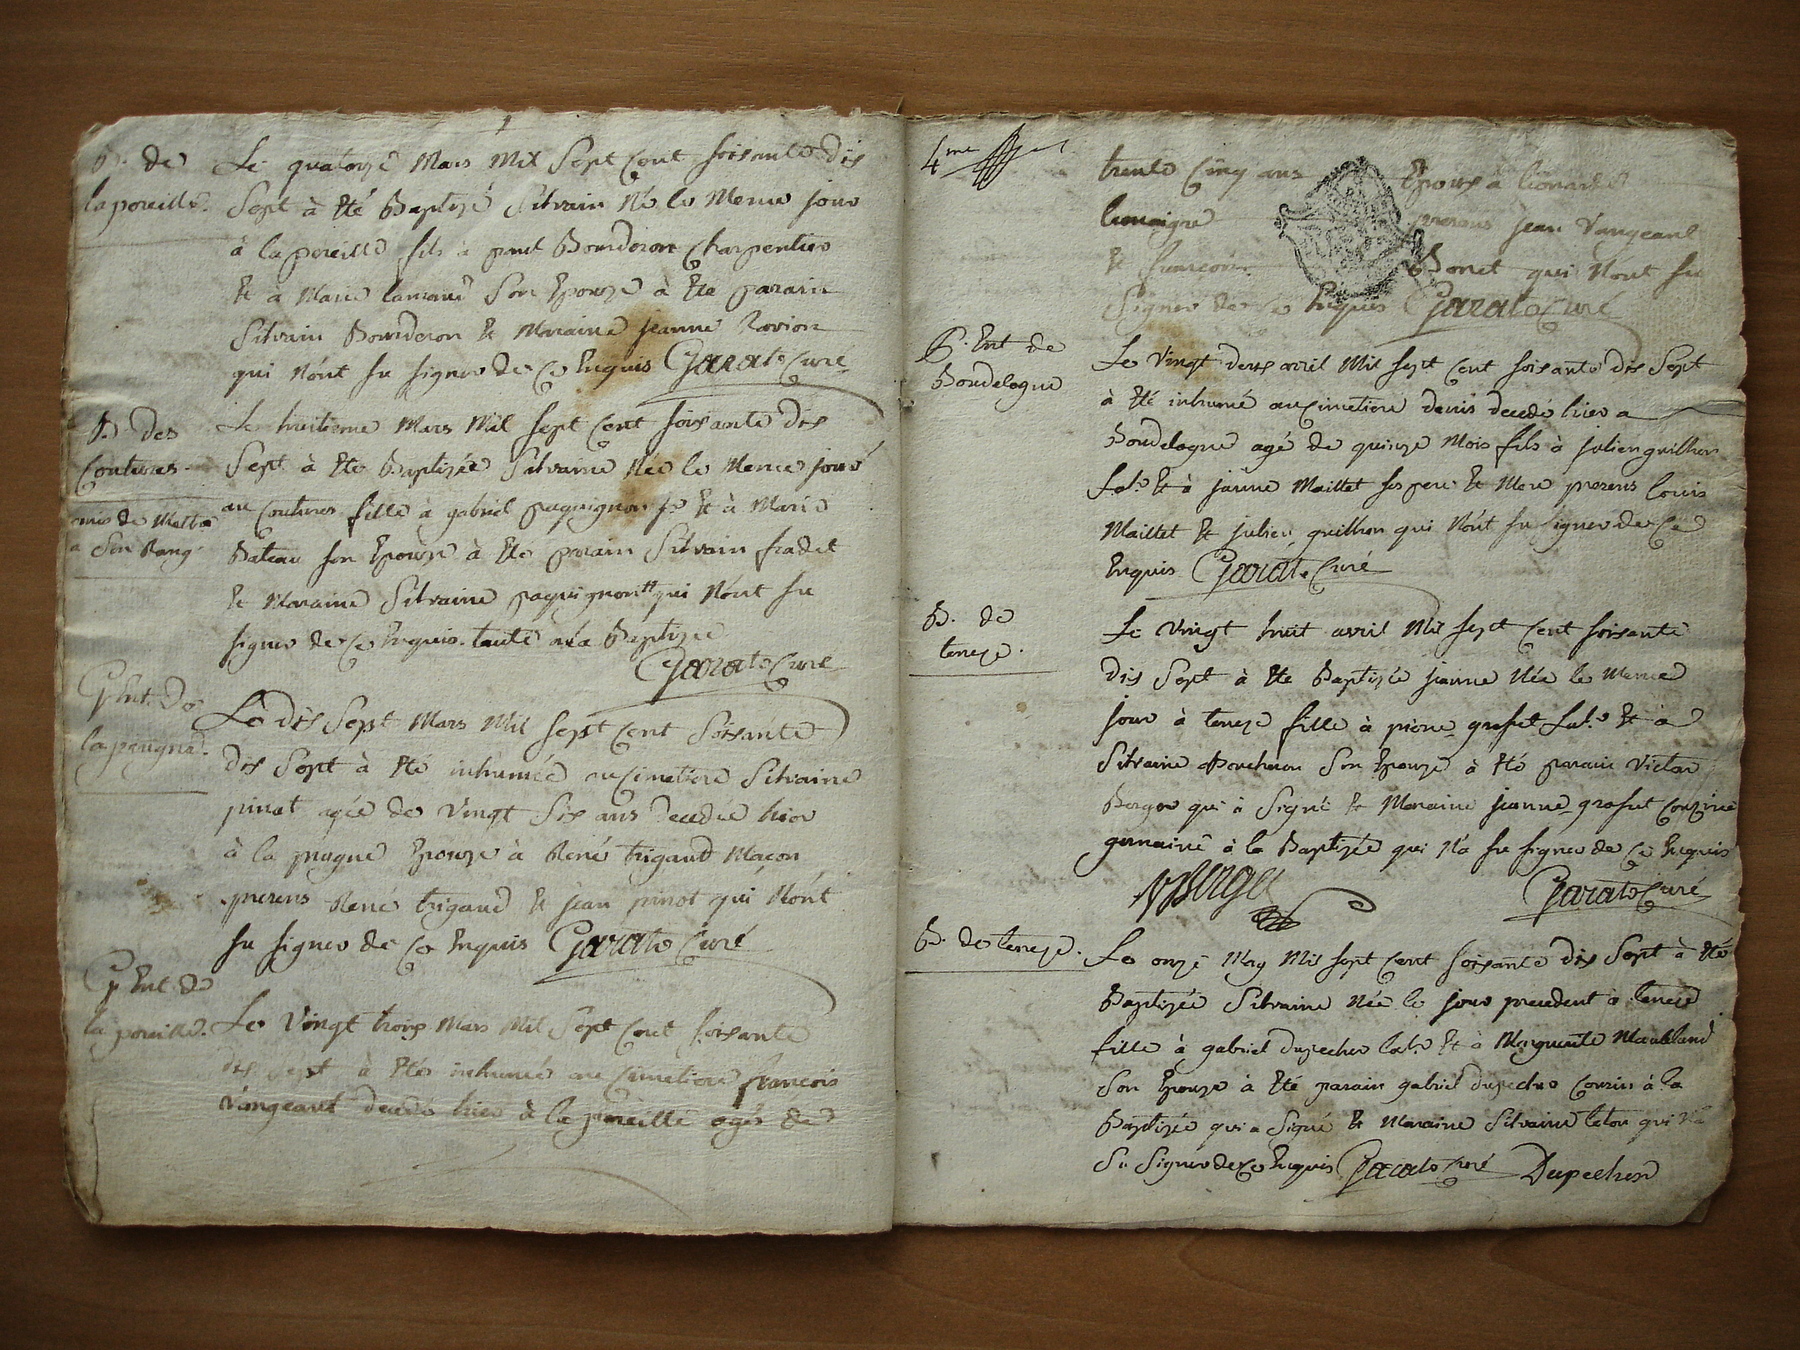 B. de
la poreille.
Le quatorze Mars Mil Sept Cent soisante dis
Sept à Eté Baptizé Silvain Né le Meme jour
à la poreille fils à paul Bourderon Charpentier
Et à Marie lamané Son Epouze à Eté parain
Silvain Bourderon & Maraine jeanne Ravion
qui N'ont su signer de ce Enquis Garat Curé
B. des
Coutures.
omis de Mettre
a Son Rang.
Le huitieme Mars Mil Sept Cent soisante dis
Sept à Eté Baptizée Silvaine Née le Meme jour
au Coutures fille à gabriel paquignon Et à Marie
Bateau son Epouze à Eté parain Silvain fradet
& Maraine Silvaine paquignon qui N'ont su
signer de ce Enquis. tante a la Baptizée
Garat Curé
Ent. de
la prugne.
Le dis Sept Mars Mil sept Cent Soisante
dis Sept à Eté inhumée au Cimetiere Silvaine
pinot agée de Vingt Six ans Decedée hier
à la prugne Epouze à René trigaud Maçon
presens René trigaud & jean pinot qui N'ont
su signer de ce Enquis Garat Curé
Ent de
la poreille.
Le Vingt trois Mars Mil Sept Cent soisante
dis Sept à Eté inhumé au Cimetiere françois
Vangeant decedé hier à la poreille agés de
4me
trente Cinq ans Epoux à lionarde
lemaigre presens jean Vangeant
& françois Bonet qui N'ont su
Signer de ce Enquis Garat Curé
Ent de
Boudelogne
Le Vingt deux avril Mil sept Cent soisante dis Sept
à Eté inhumé au Cimetiere denis decedé hier a
Boudelogne agé de quinze Mois fils à julien guilhon
Lab. Et à jeanne Maillet ses pere & Mere presens louis
Maillet & julien guilhon qui N'ont su signer de Ce
Enquis Garat Curé
B. de
teneze.
Le Vingt huit avril Mil sept Cent soisante
dis Sept à Eté Baptizée jeanne Née le Meme
jour à teneze fille à pierre grafet Lab. Et à
Silvaine Boucheron Son Epouze à Eté parain Victor
Berger qui à Signé & Maraine jeanne grafet Couzine
germaine à la Baptizée qui N'a su signer de Ce Enquis
VBerger Garat Curé
B. de teneze.
Le onze May Mil sept Cent soisante dis Sept à Eté
Baptizée Silvaine Née le jour precedent à teneze
fille à gabriel dupecher lab. Et à Marguerite Maubland
Son Epouze à Eté parain gabriel dupecher Couzin à la
Baptizée qui a Signé & Maraine Silvaine leton qui N'a
Su Signer de ce Enquis Garat Curé Dupecher